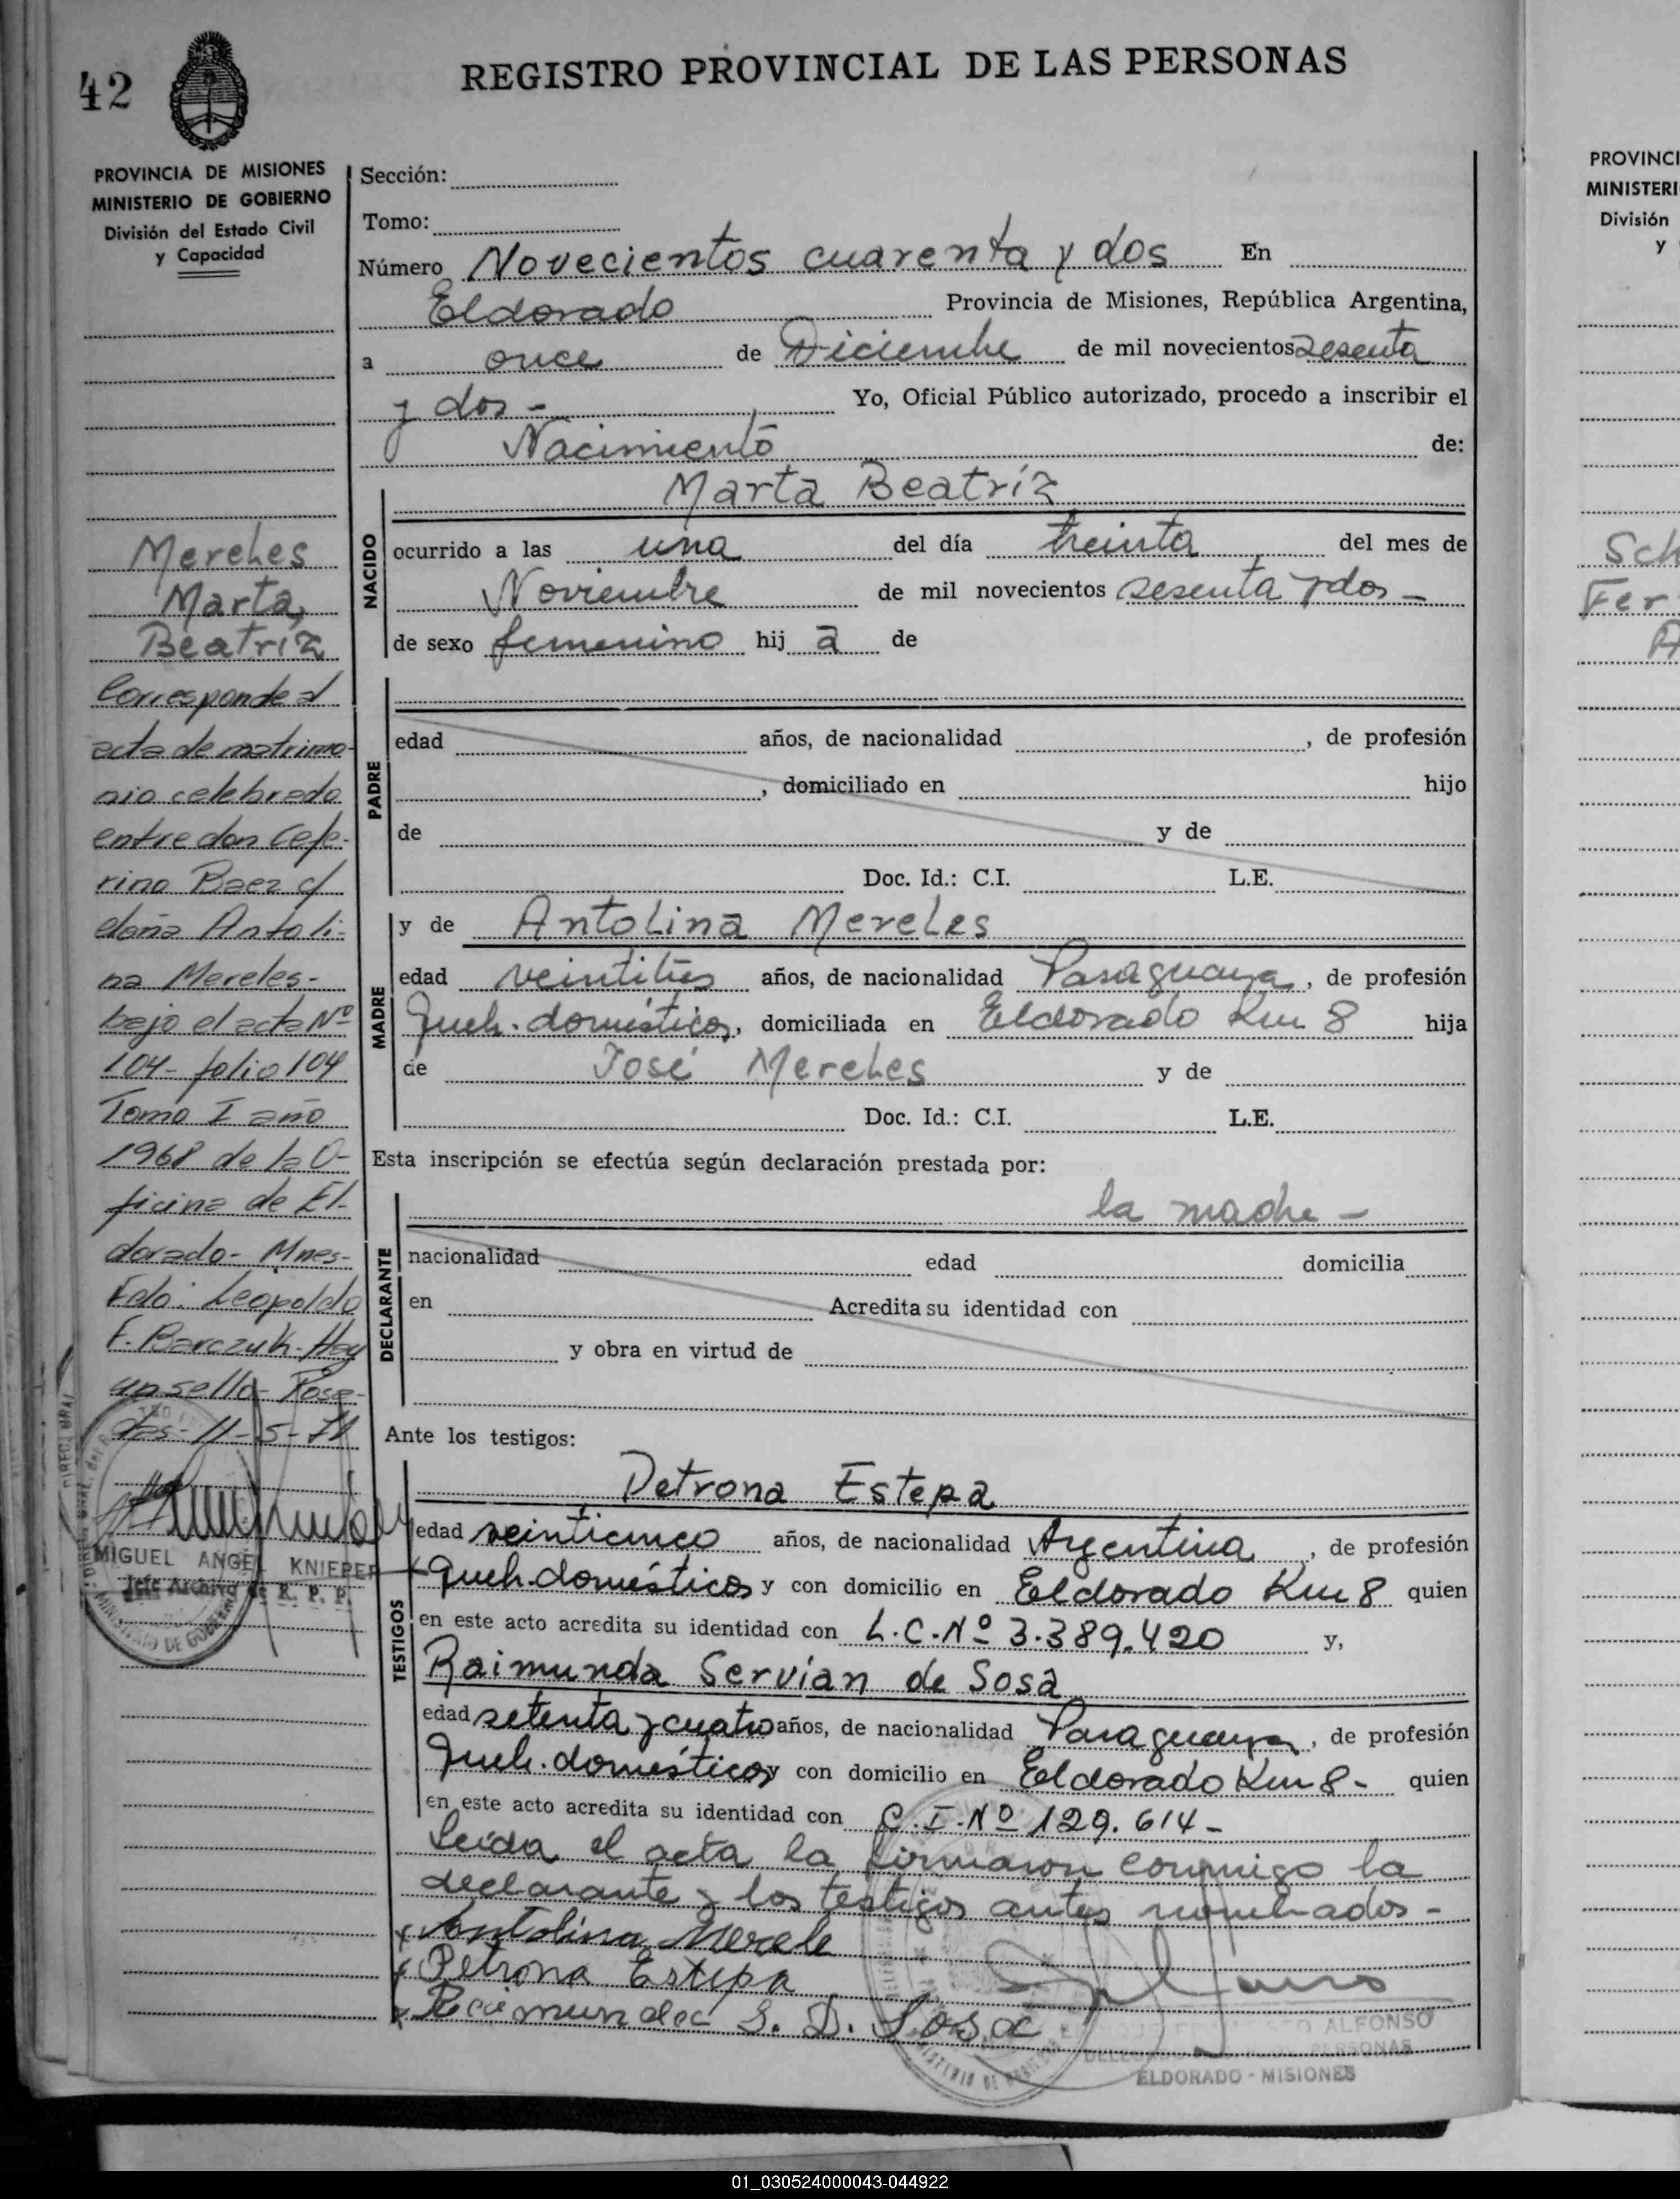 42
REGISTRO PROVINCIAL DE LAS PERSONAS
PROVINCIA DE MISIONES
MINISTERIO DE GOBIERNO
División del Estado Civil
y Capacidad
Mereles
Marta
Beatríz
Corresponde al
acta de matrimo-
nio celebrado
entre don Cefe-
rino Baez c/
doña Antoli-
na Mereles-
bajo el acta Nº
104- folio 104
Tomo I año
1968 de la O-
ficina de El-
dorado- Mnes-
Fdo: Leopoldo
F. Barczuk- Hay
un sello- Posa-
das- 11-5-71
MIGUEL ANGEL KNIEPER
Jefe Archivo de R. P. P.
Sección:
Tomo:
Número Novecientos cuarenta y dos En
Eldorado Provincia de Misiones, República Argentina,
a once de Diciembre de mil novecientos sesenta
y dos - Yo, Oficial Público autorizado, procedo a inscribir el
Nacimiento de:
NACIDO
Marta Beatríz
ocurrido a las una del día treinta del mes de
Noviembre de mil novecientos sesenta y dos -
de sexo femenino hij a de
PADRE
edad años, de nacionalidad , de profesión
, domiciliado en hijo
de y de
Doc. Id.: C.I. L.E.
MADRE
y de Antolina Mereles
edad veintitres años, de nacionalidad Paraguaya, de profesión
Queh. domésticos, domiciliada en Eldorado Km 8 hija
de José Mereles y de
Doc. Id.: C.I. L.E.
Esta inscripción se efectúa según declaración prestada por:
DECLARANTE
la madre -
nacionalidad edad domicilia
en Acredita su identidad con
y obra en virtud de
Ante los testigos:
TESTIGOS
Petrona Estepa
edad veinticinco años, de nacionalidad Argentina, de profesión
Queh. domésticos y con domicilio en Eldorado Km 8 quien
en este acto acredita su identidad con L.C. Nº 3.389.420 y,
Raimunda Servian de Sosa
edad setenta y cuatro años, de nacionalidad Paraguaya, de profesión
Queh. domésticos y con domicilio en Eldorado Km 8 - quien
en este acto acredita su identidad con C.I. Nº 129.614 -
Leída el acta la firmaron conmigo la
declarante y los testigos antes nombrados -
Antolina Merele
Petrona Estepa
Raimunda S. D. Sosa
ALFONSO
PERSONAS
ELDORADO - MISIONES
PROVINCI
MINISTERI
División
y
Sch
Fer
A
01_030524000043-044922